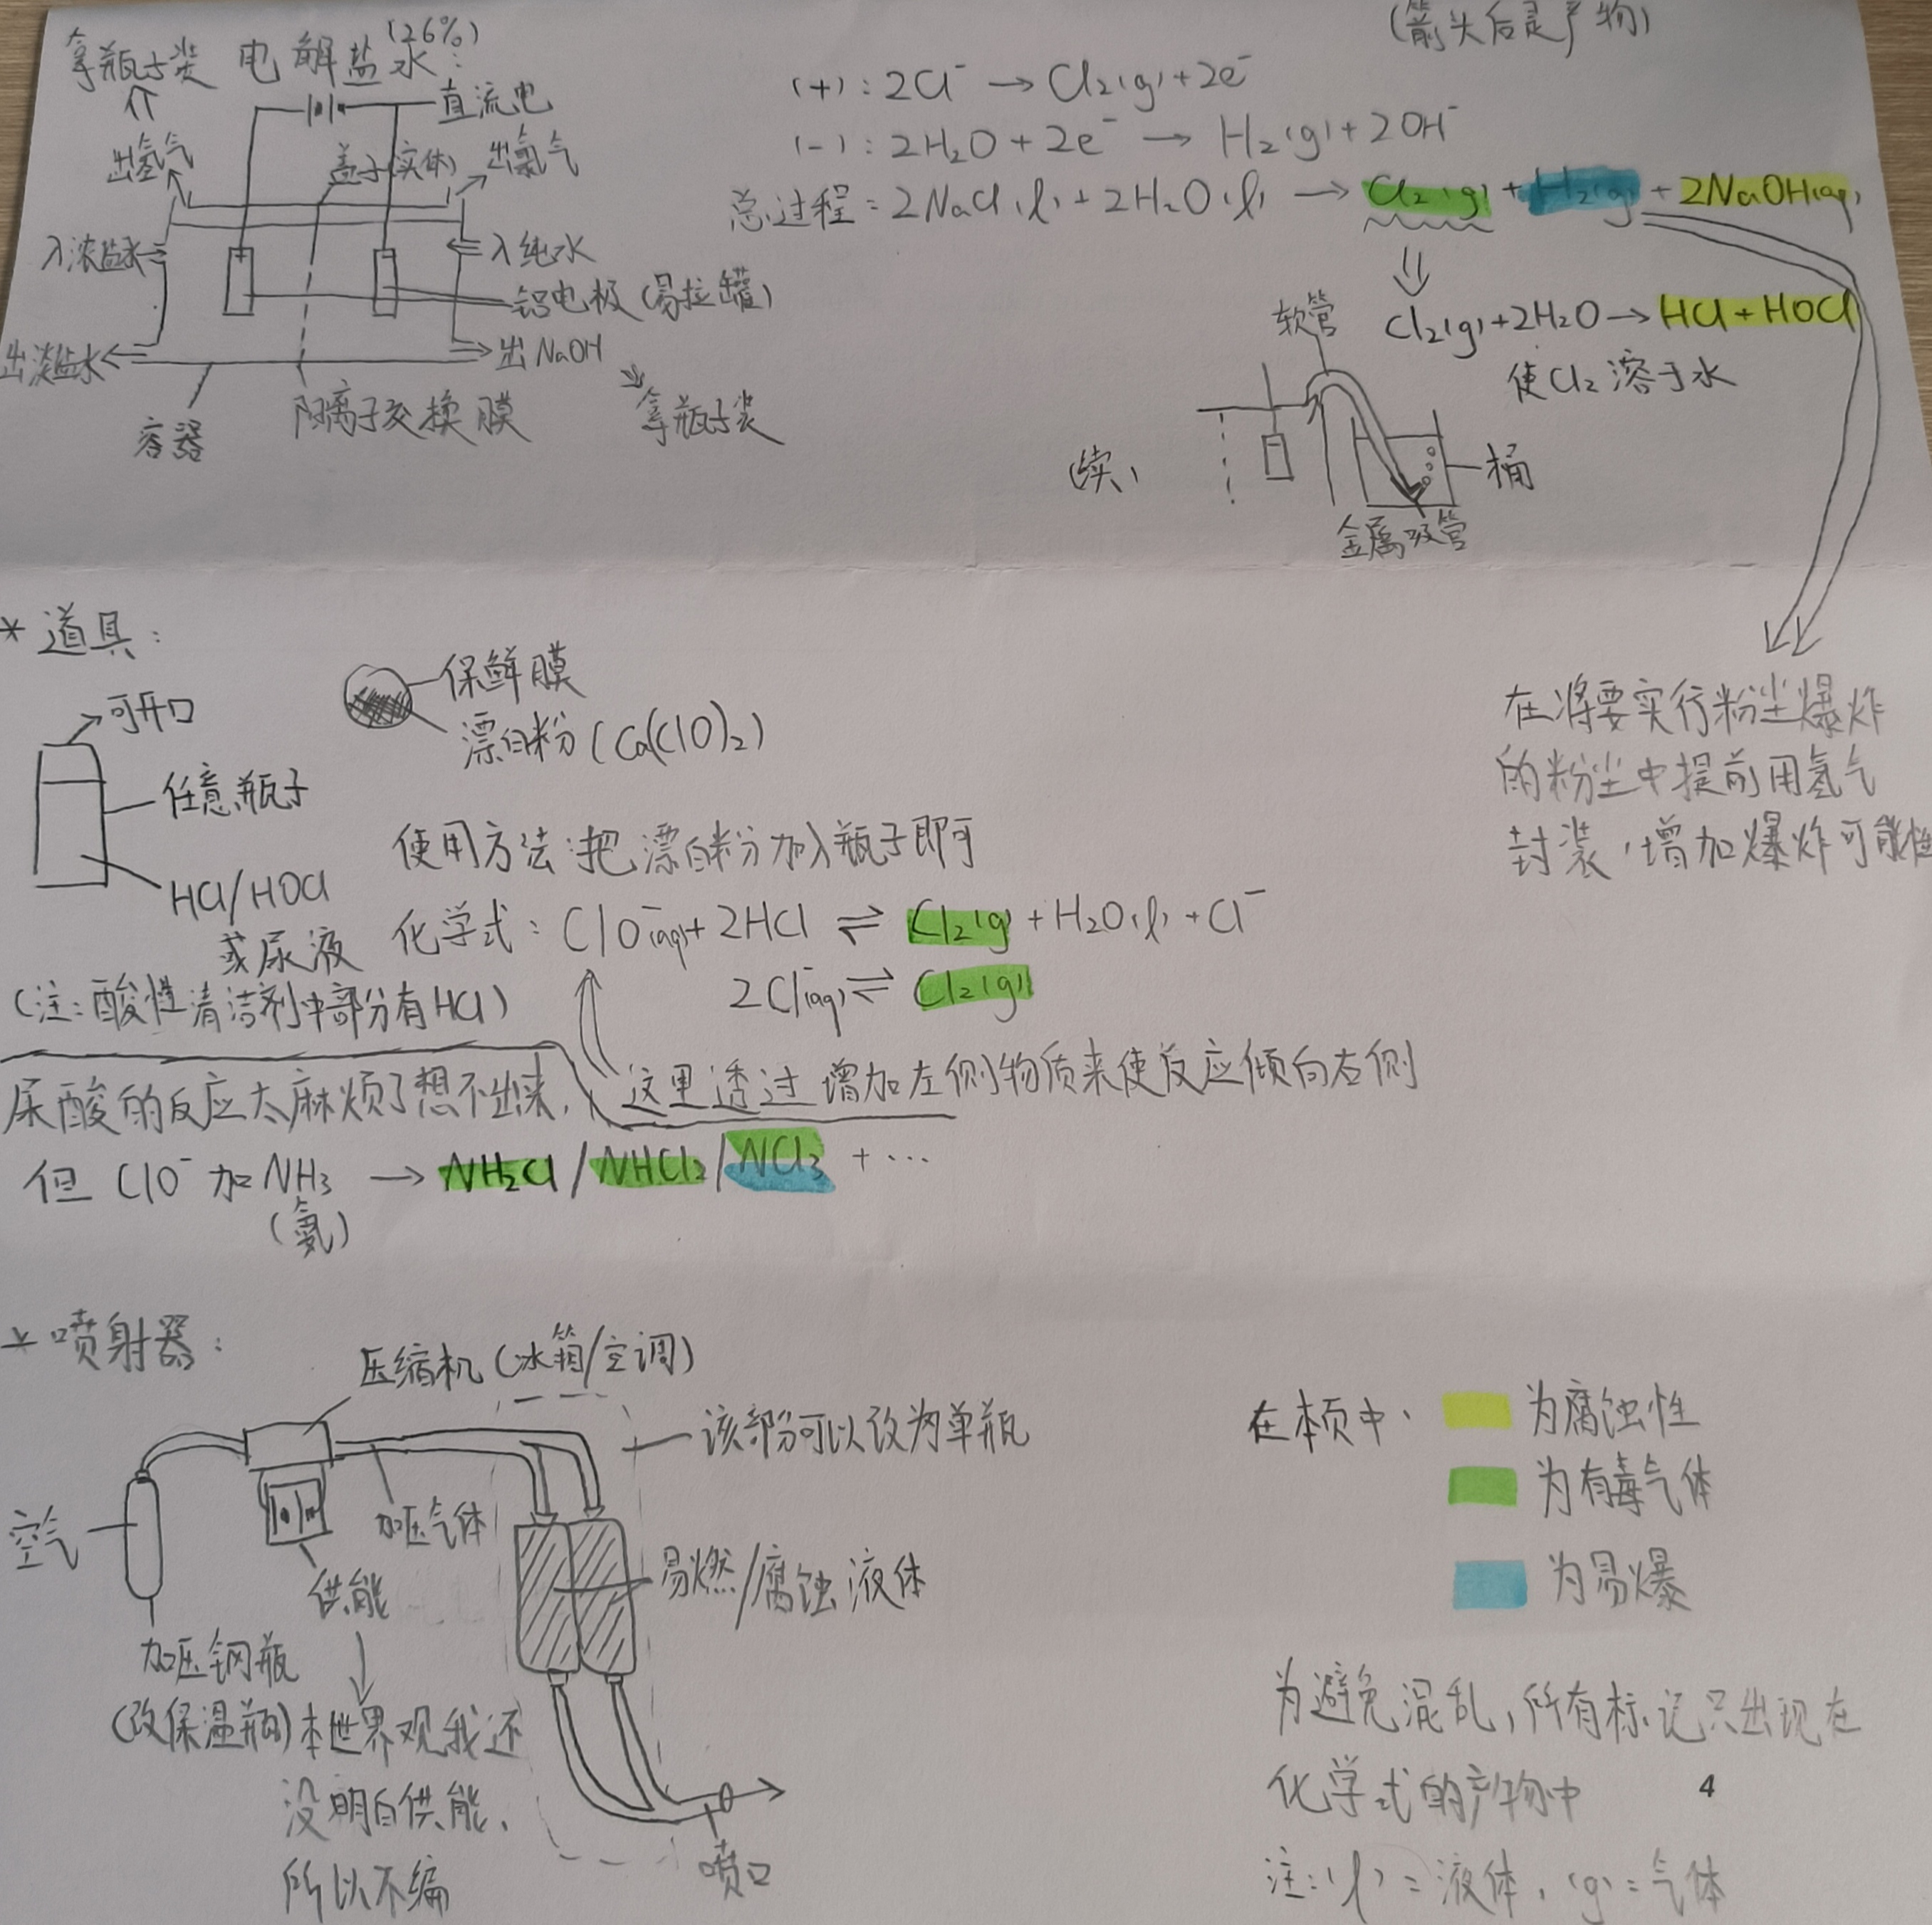 (箭头后是产物)
拿瓶子装 电解盐水(26%):
直流电
出氢气
盖子(实体)
出氯气
入浓盐水
入纯水
铝电极(易拉罐)
出淡盐水
出NaOH
容器
阳离子交换膜
拿瓶子装
(+): 2Cl⁻ → Cl₂(g) + 2e⁻
(-): 2H₂O + 2e⁻ → H₂(g) + 2OH⁻
总过程: 2NaCl(l) + 2H₂O(l) → Cl₂(g) + H₂(g) + 2NaOH(aq)
Cl₂(g) + 2H₂O → HCl + HOCl
使Cl₂溶于水
软管
(续)
桶
金属吸管
在将要实行粉尘爆炸
的粉尘中提前用氢气
封装,增加爆炸可能性
* 道具:
可开口
任意瓶子
HCl/HOCl
或尿液
(注:酸性清洁剂中部分有HCl)
保鲜膜
漂白粉(Ca(ClO)₂)
使用方法:把漂白粉加入瓶子即可
化学式: ClO⁻(aq) + 2HCl ⇌ Cl₂(g) + H₂O(l) + Cl⁻
2Cl⁻(aq) ⇌ Cl₂(g)
这里透过增加左侧物质来使反应倾向右侧
尿酸的反应太麻烦了想不出来,
但 ClO⁻ 加 NH₃ → NH₂Cl / NHCl₂ / NCl₃ + …
(氨)
* 喷射器:
压缩机(冰箱/空调)
该部分可以改为单瓶
空气
加压气体
供能
易燃/腐蚀液体
加压钢瓶
(改保温瓶)
本世界观我还
没明白供能,
所以不编
喷口
在本页中,
为腐蚀性
为有毒气体
为易爆
为避免混乱,所有标记只出现在
化学式的产物中
4
注:(l) = 液体, (g) = 气体